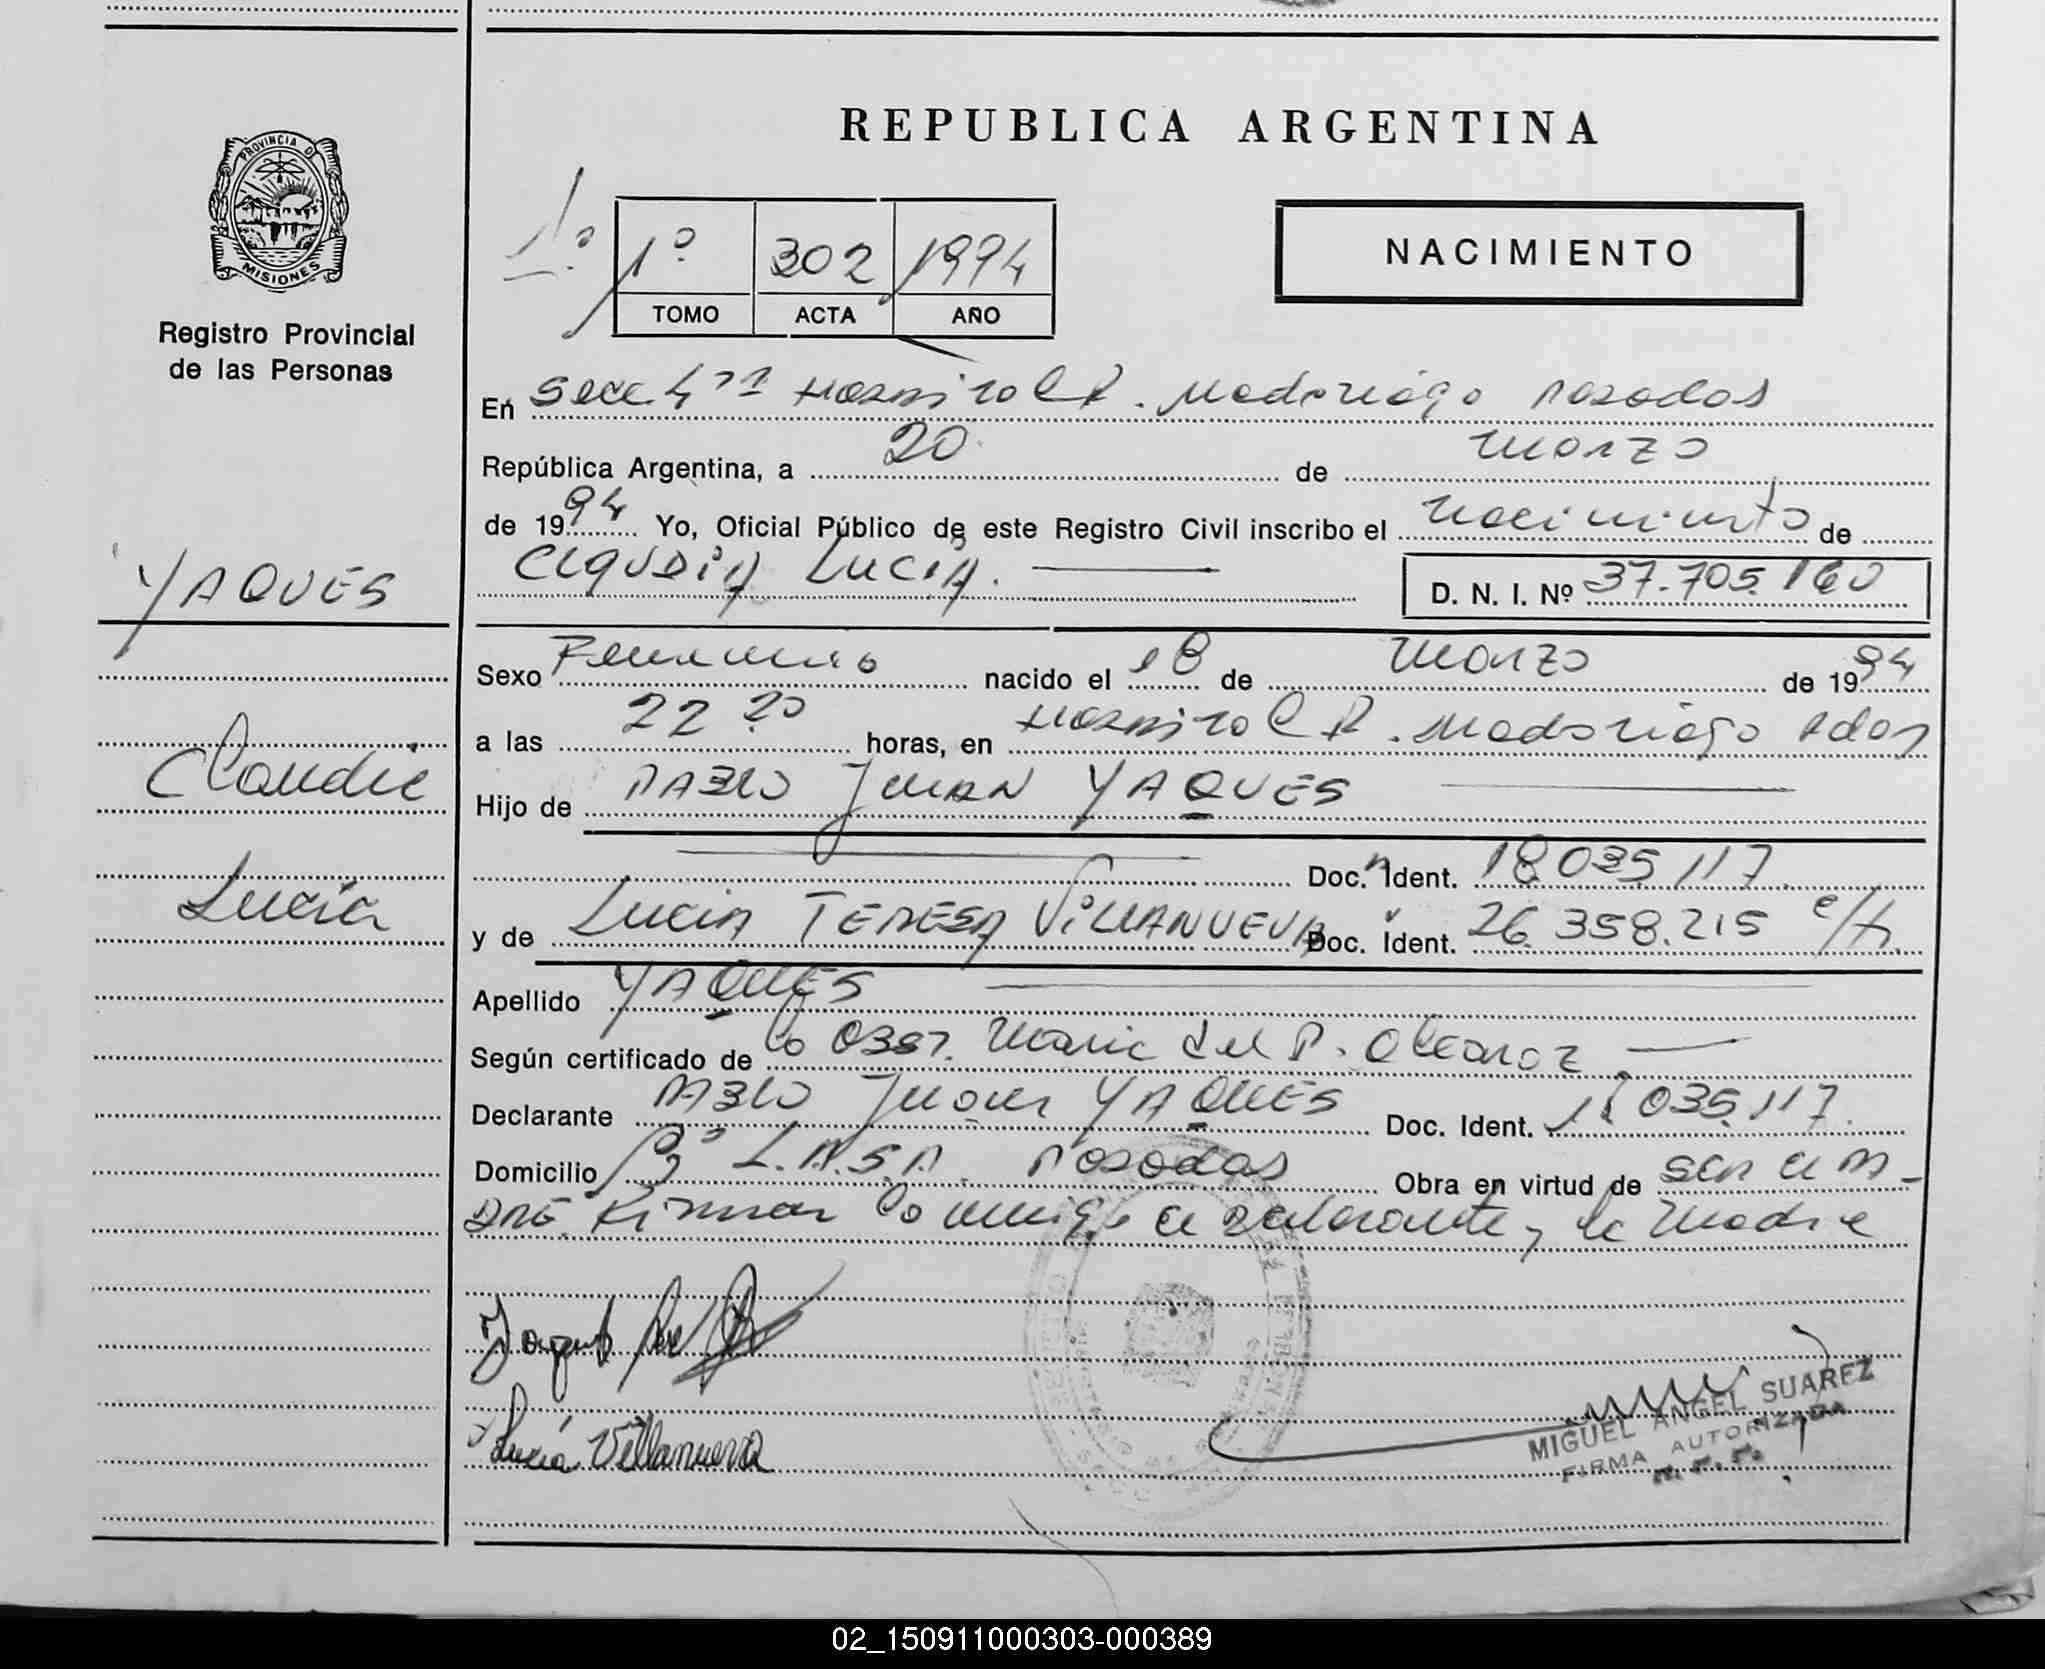 REPUBLICA ARGENTINA
PROVINCIA D
MISIONES
Registro Provincial
de las Personas
1º
1º 302 1994
TOMO ACTA AÑO
NACIMIENTO
En Secc 4ª Hospital R. Madariaga Posadas
República Argentina, a 20 de Marzo
de 1994 Yo, Oficial Público de este Registro Civil inscribo el nacimiento de
CLAUDIA LUCIA. D. N. I. Nº 37.705.160
YAQUES
Sexo Femenino nacido el 18 de Marzo de 1994
a las 22 20 horas, en Hospital R. Madariaga Pdas
Claudia
Hijo de PABLO JUAN YAQUES
Doc. Ident. 18.035.117.
Lucía
y de LUCIA TERESA VILLANUEVA Doc. Ident. 26.358.215
Apellido YAQUES
Según certificado de la Obst. Maria del P. Alcaraz
Declarante PABLO Juan YAQUES Doc. Ident. 18.035.117.
Domicilio Bº Posadas Obra en virtud de ser el PA-
DRE Firman conmigo el declarante y la Madre
Lucía Villanueva
MIGUEL ANGEL SUAREZ
FIRMA AUTORIZADA
02_150911000303-000389